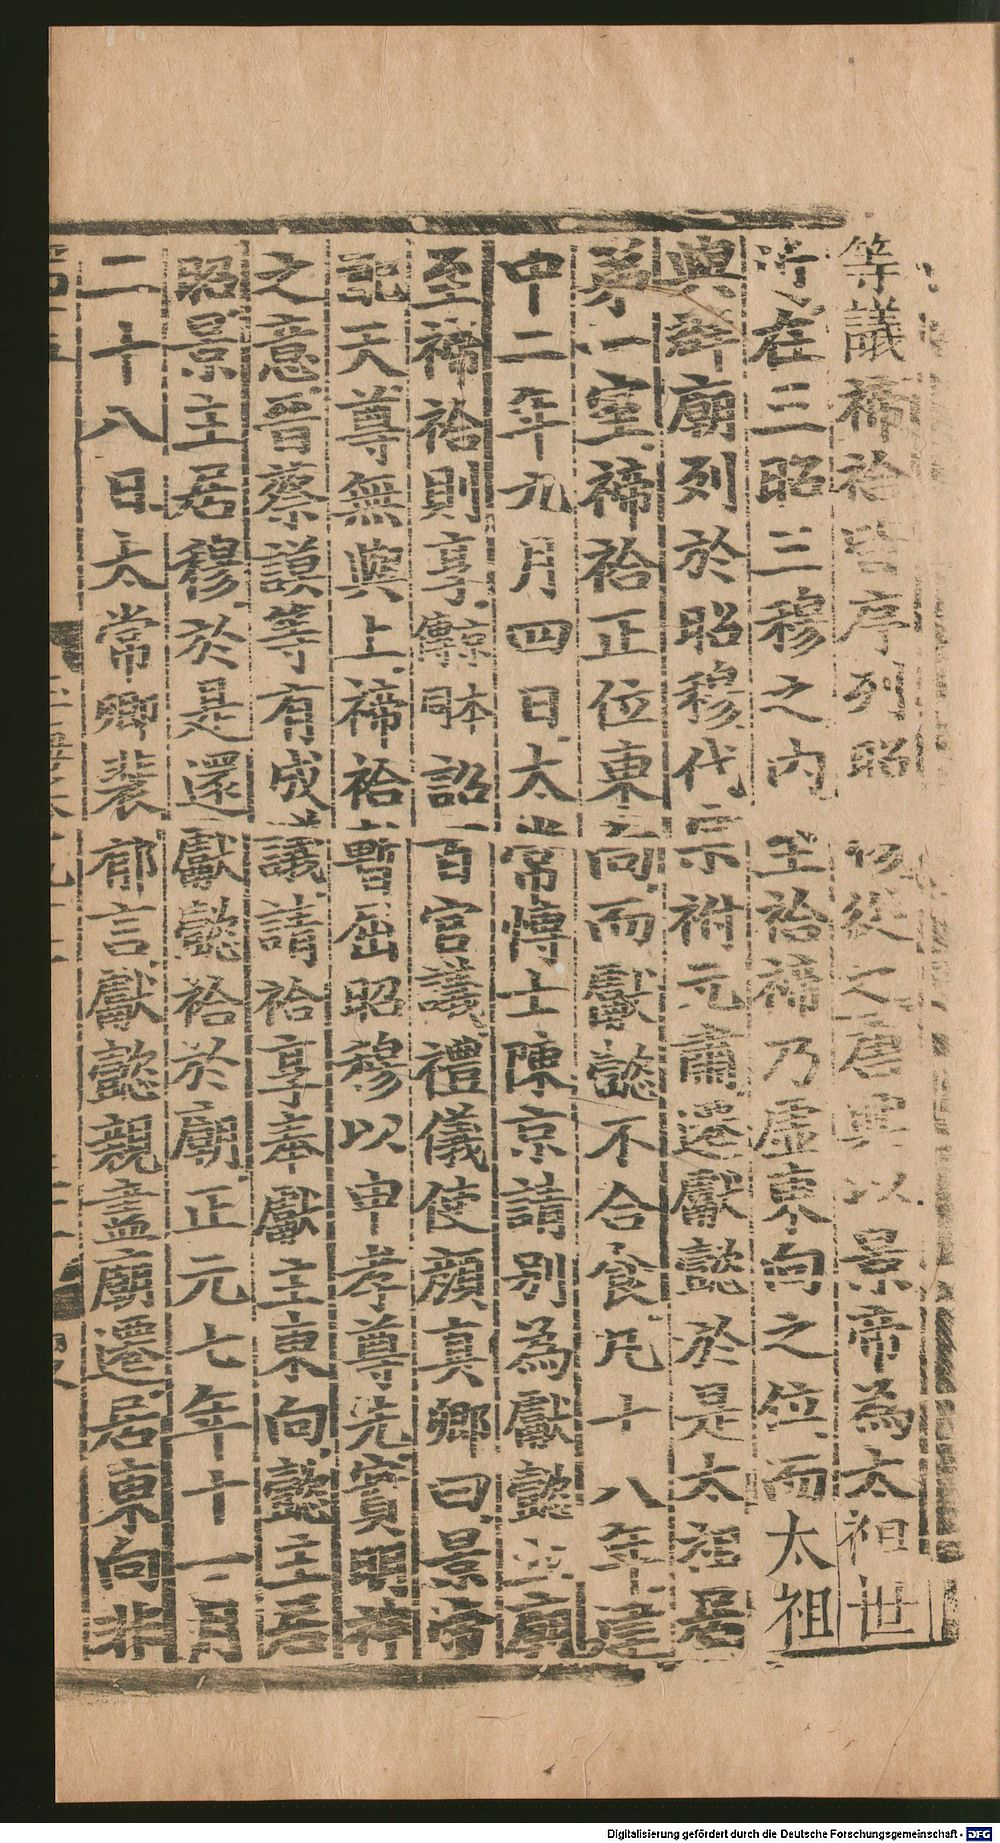 等議禘祫皆序列昭 從之唐興以景帝為太祖世
在三昭三穆之內 至祫禘乃虛東向之位而太祖
與群廟列於昭穆代宗祔元肅遷獻懿於是太祖居
第一室禘祫正位東向而獻懿不合食凡十八年建
中二年九月四日太常博士陳京請別為獻懿立廟
至禘祫則享 京傳同 詔百官議禮儀使顏真卿曰景帝
配天尊無與上禘祫暫居昭穆以申孝尊先實明神
之意晉蔡謨等有成議請祫享奉獻主東向懿主居
昭景主居穆於是還獻懿祫於廟正元七年十一月
二十八日太常卿裴郁言獻懿親盡廟遷居東向非
Digitalisierung gefördert durch die Deutsche Forschungsgemeinschaft - DFG